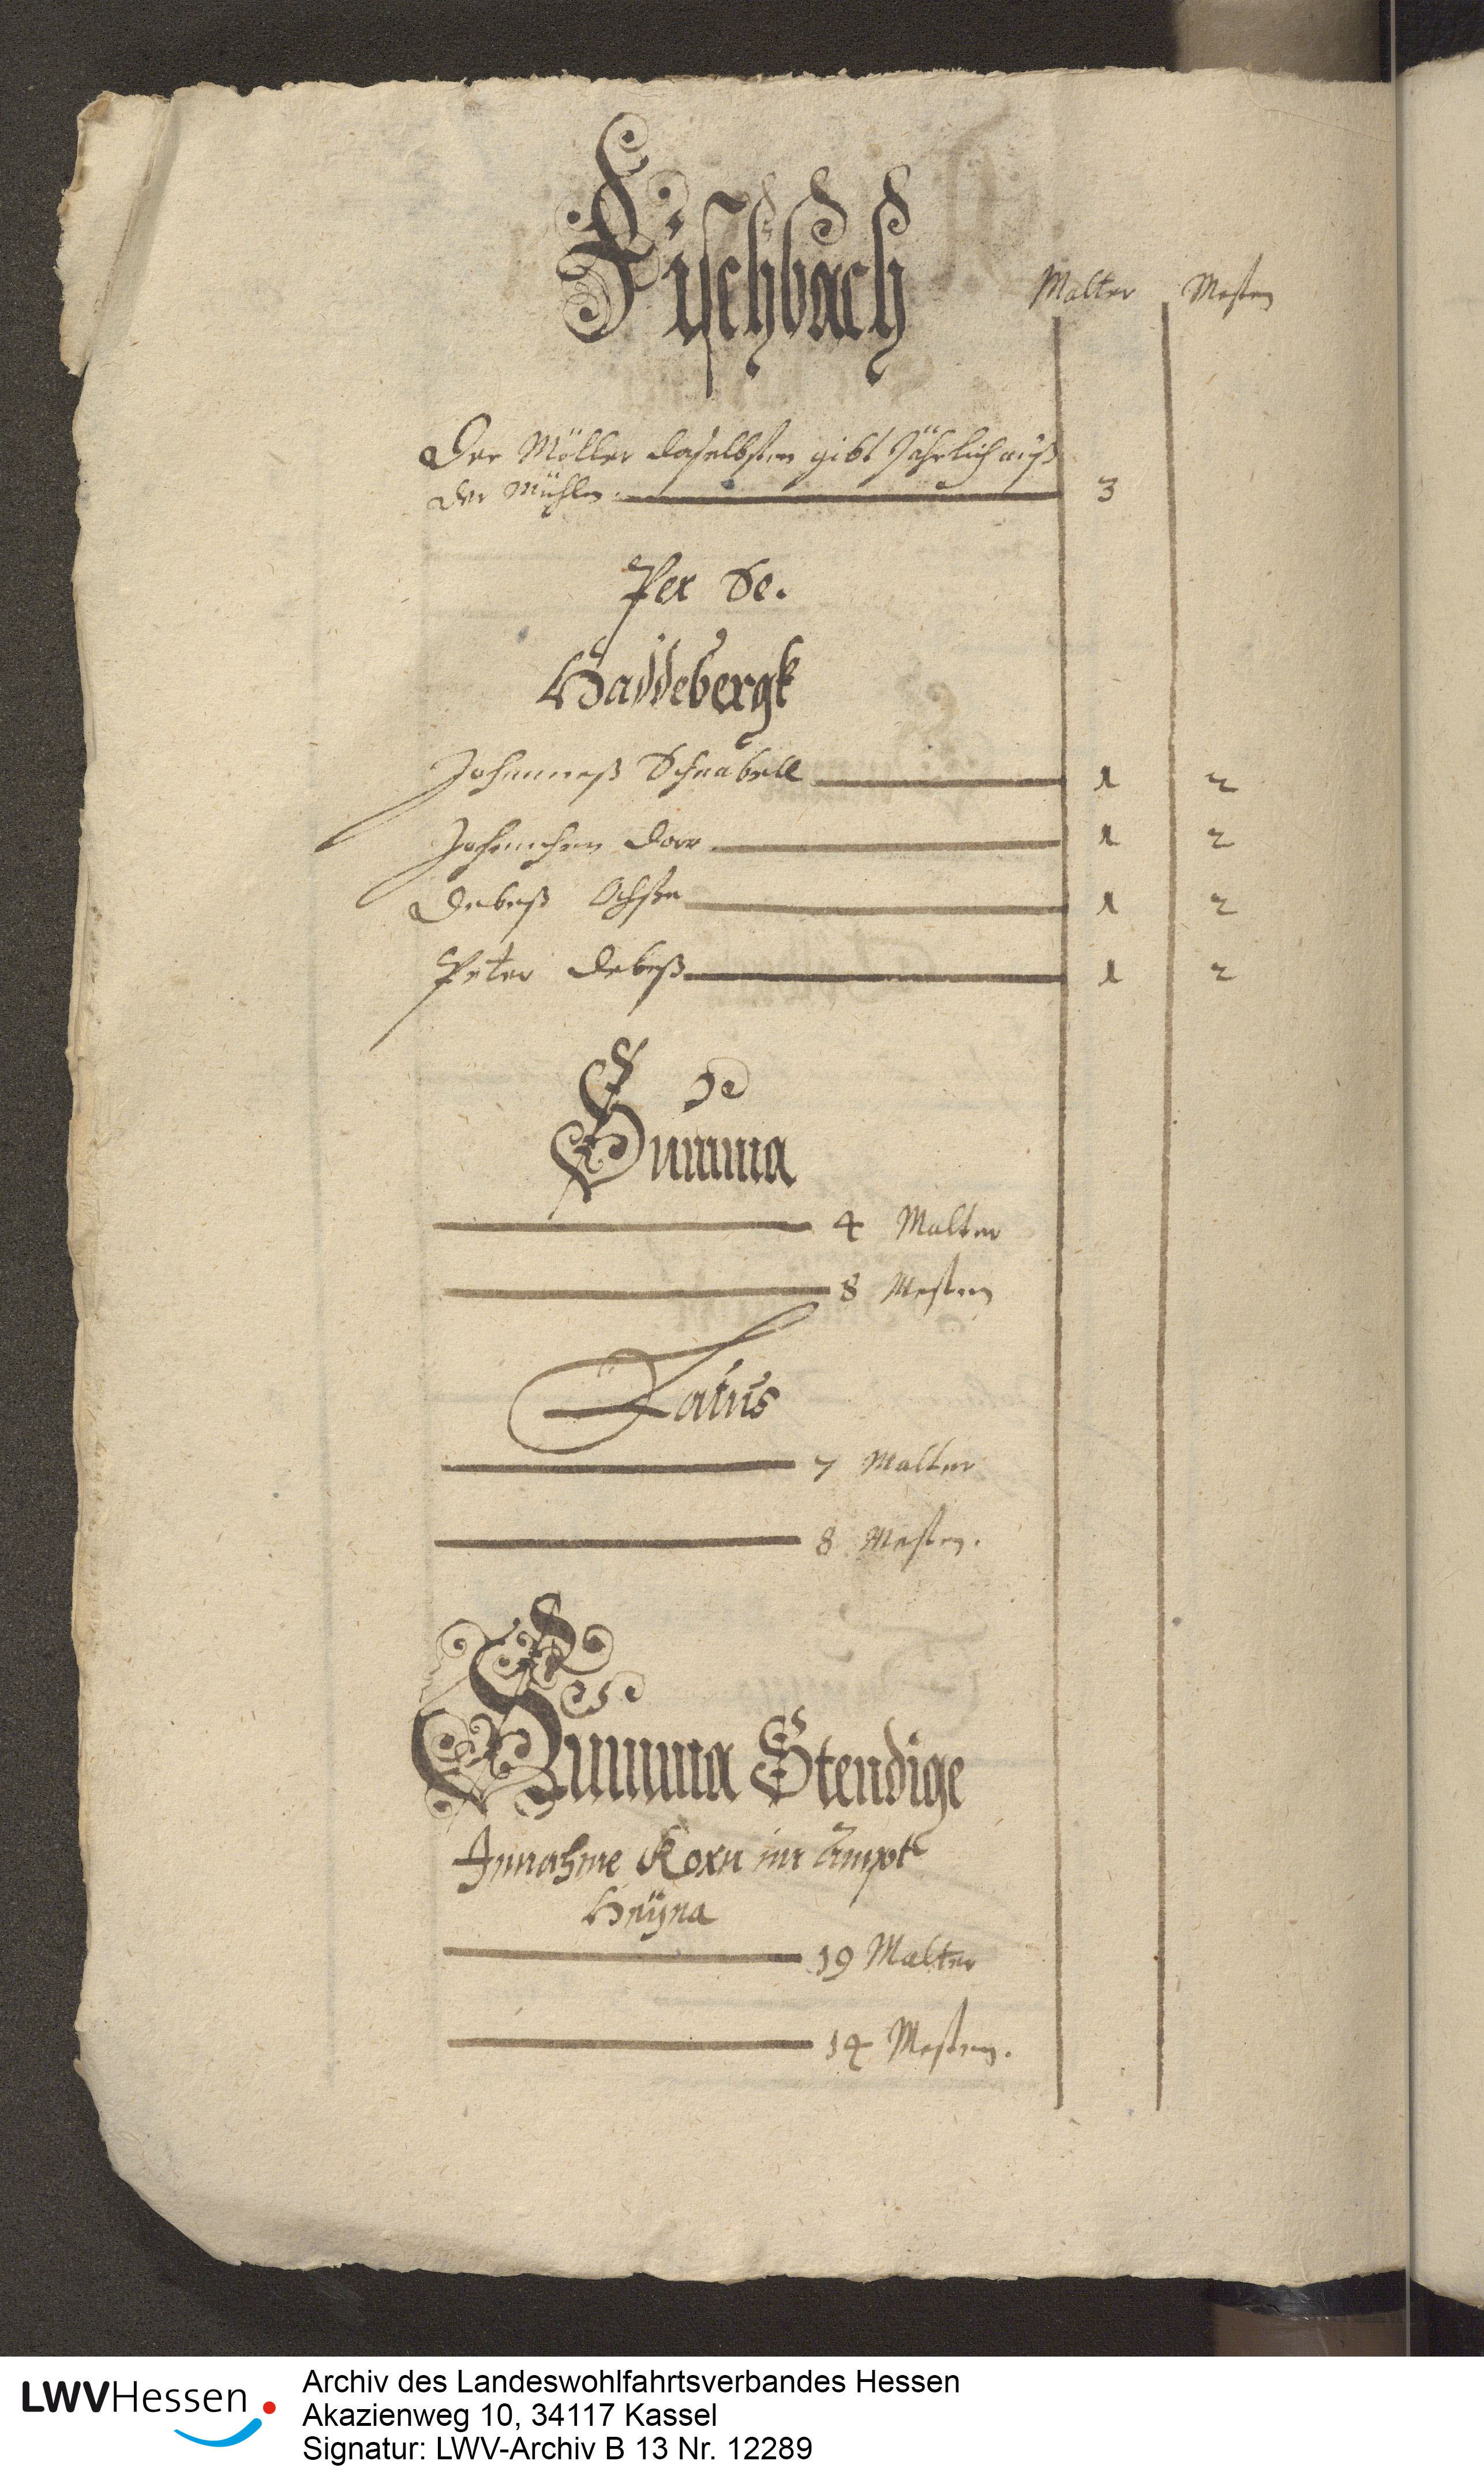 Fischbach
Malter Mesten
Der Möller daselbsten gibt Jährlich auß
der Mühlen. 3
Per Se.
Haddebergk
Johanneß Schnabell 1 2
Johenchen 1 2
Debeß Ochße 1 2
Peter Debeß 1 2
Summa
4 Malter
8 Mesten
Latus
7 Malter
8 Mesten.
Summa Stendige
Innahme Korn im Ampt
Haÿna
19 Malter
14 Mesten.
LWVHessen
Archiv des Landeswohlfahrtsverbandes Hessen
Akazienweg 10, 34117 Kassel
Signatur: LWV-Archiv B 13 Nr. 12289